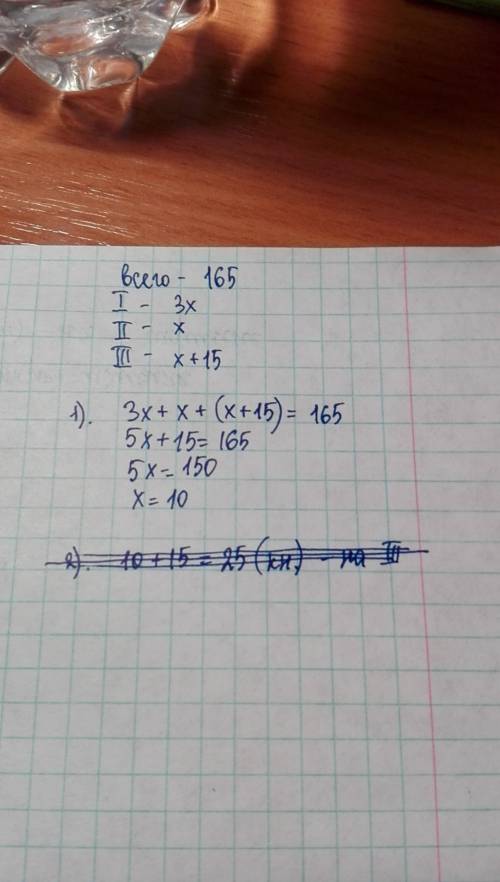 Всего - 165
I - 3x
II - x
III - x + 15
1). 3x + x + (x+15) = 165
5x + 15 = 165
5x = 150
x = 10
2). 10 + 15 = 25 (кн) - на III